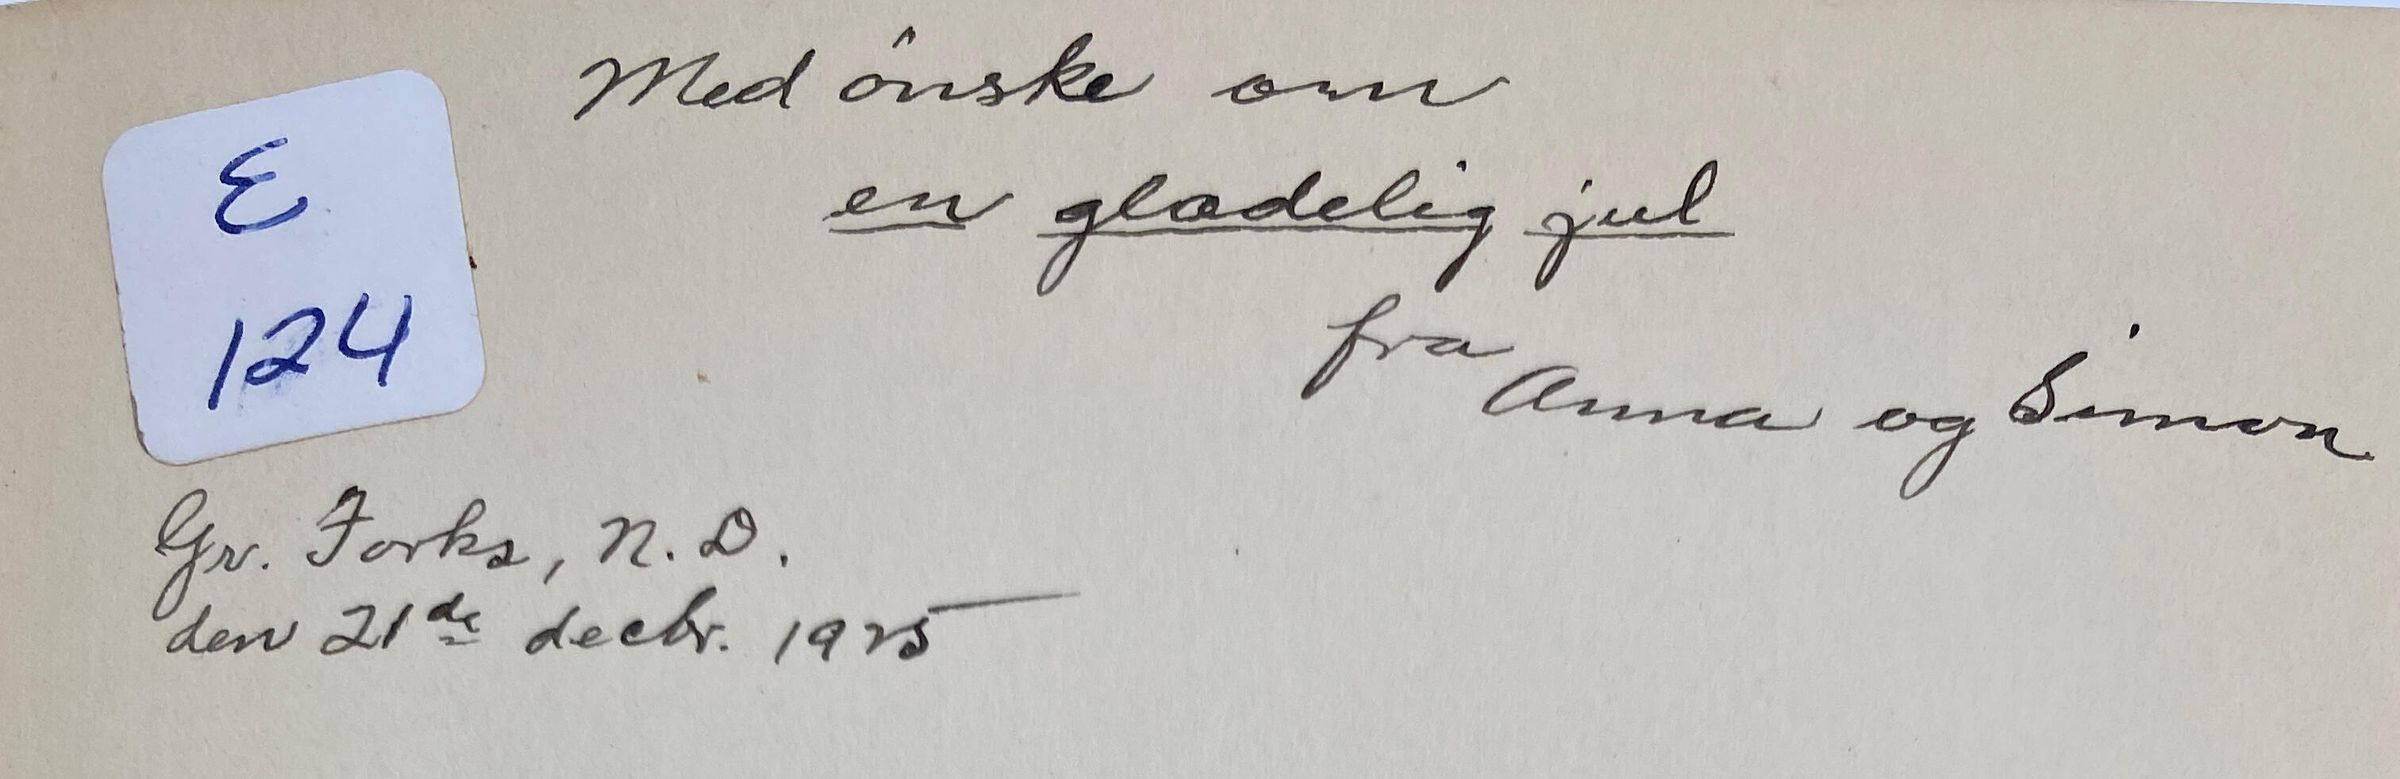 Med önske om
en glædelig jul
fra
Anna og Simon
E
124
Gr. Forks, N. D.
den 21de decbr. 1925